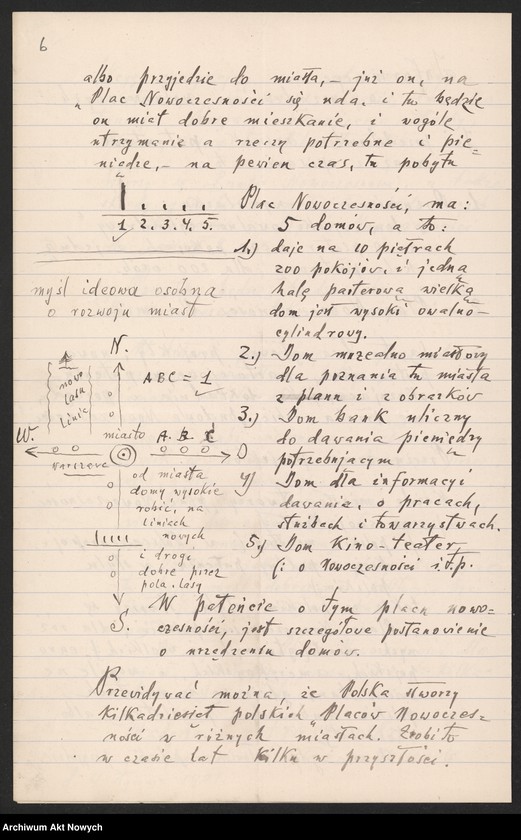 6
albo przyjedzie do miasta,- już on, na
"Plac Nowoczesności się uda. i tu będzie
on miał dobre mieszkanie, i wogóle
utrzymanie a rzeczy potrzebne i pie=
niądze,- na pewien czas, tu pobytu
1 2. 3. 4. 5.
Plac Nowoczesności, ma:
5 domów, a to:
1.) daje na 10 piętrach
200 pokojów, i jedną
halę parterową wielką
dom jest wysoki owalno-
cylindrowy.
myśl ideowa osobna
o rozwoju miast
2.) Dom urzędno miastowy
dla poznania tu miasta
z planu i z obrazków
3.) Dom bank uliczny
do dawania pieniędzy
potrzebującym
4) Dom dla informacyi
dawania, o pracach,
służbach i towarzystwach.
5.) Dom Kino-teater
(: o Nowoczesności i.t.p.
N.
ABC = 1
nowo
lasu
linie
W.
miasto A. B. C
Warszawa
od miasta
domy wysokie
robić, na
liniach
nowych
i drogi
dobre, przez
pola. lasy
S.
W patencie o tym placu nowo=
czesności, jest szczegółowe postanowienie
o urządzeniu domów.
Przewidywać można, że Polska stworzy
kilkadziesiąt polskich "Placów Nowoczes=
ności w różnych miastach. Zrobi to
w czasie lat kilku w przyszłości.
Archiwum Akt Nowych